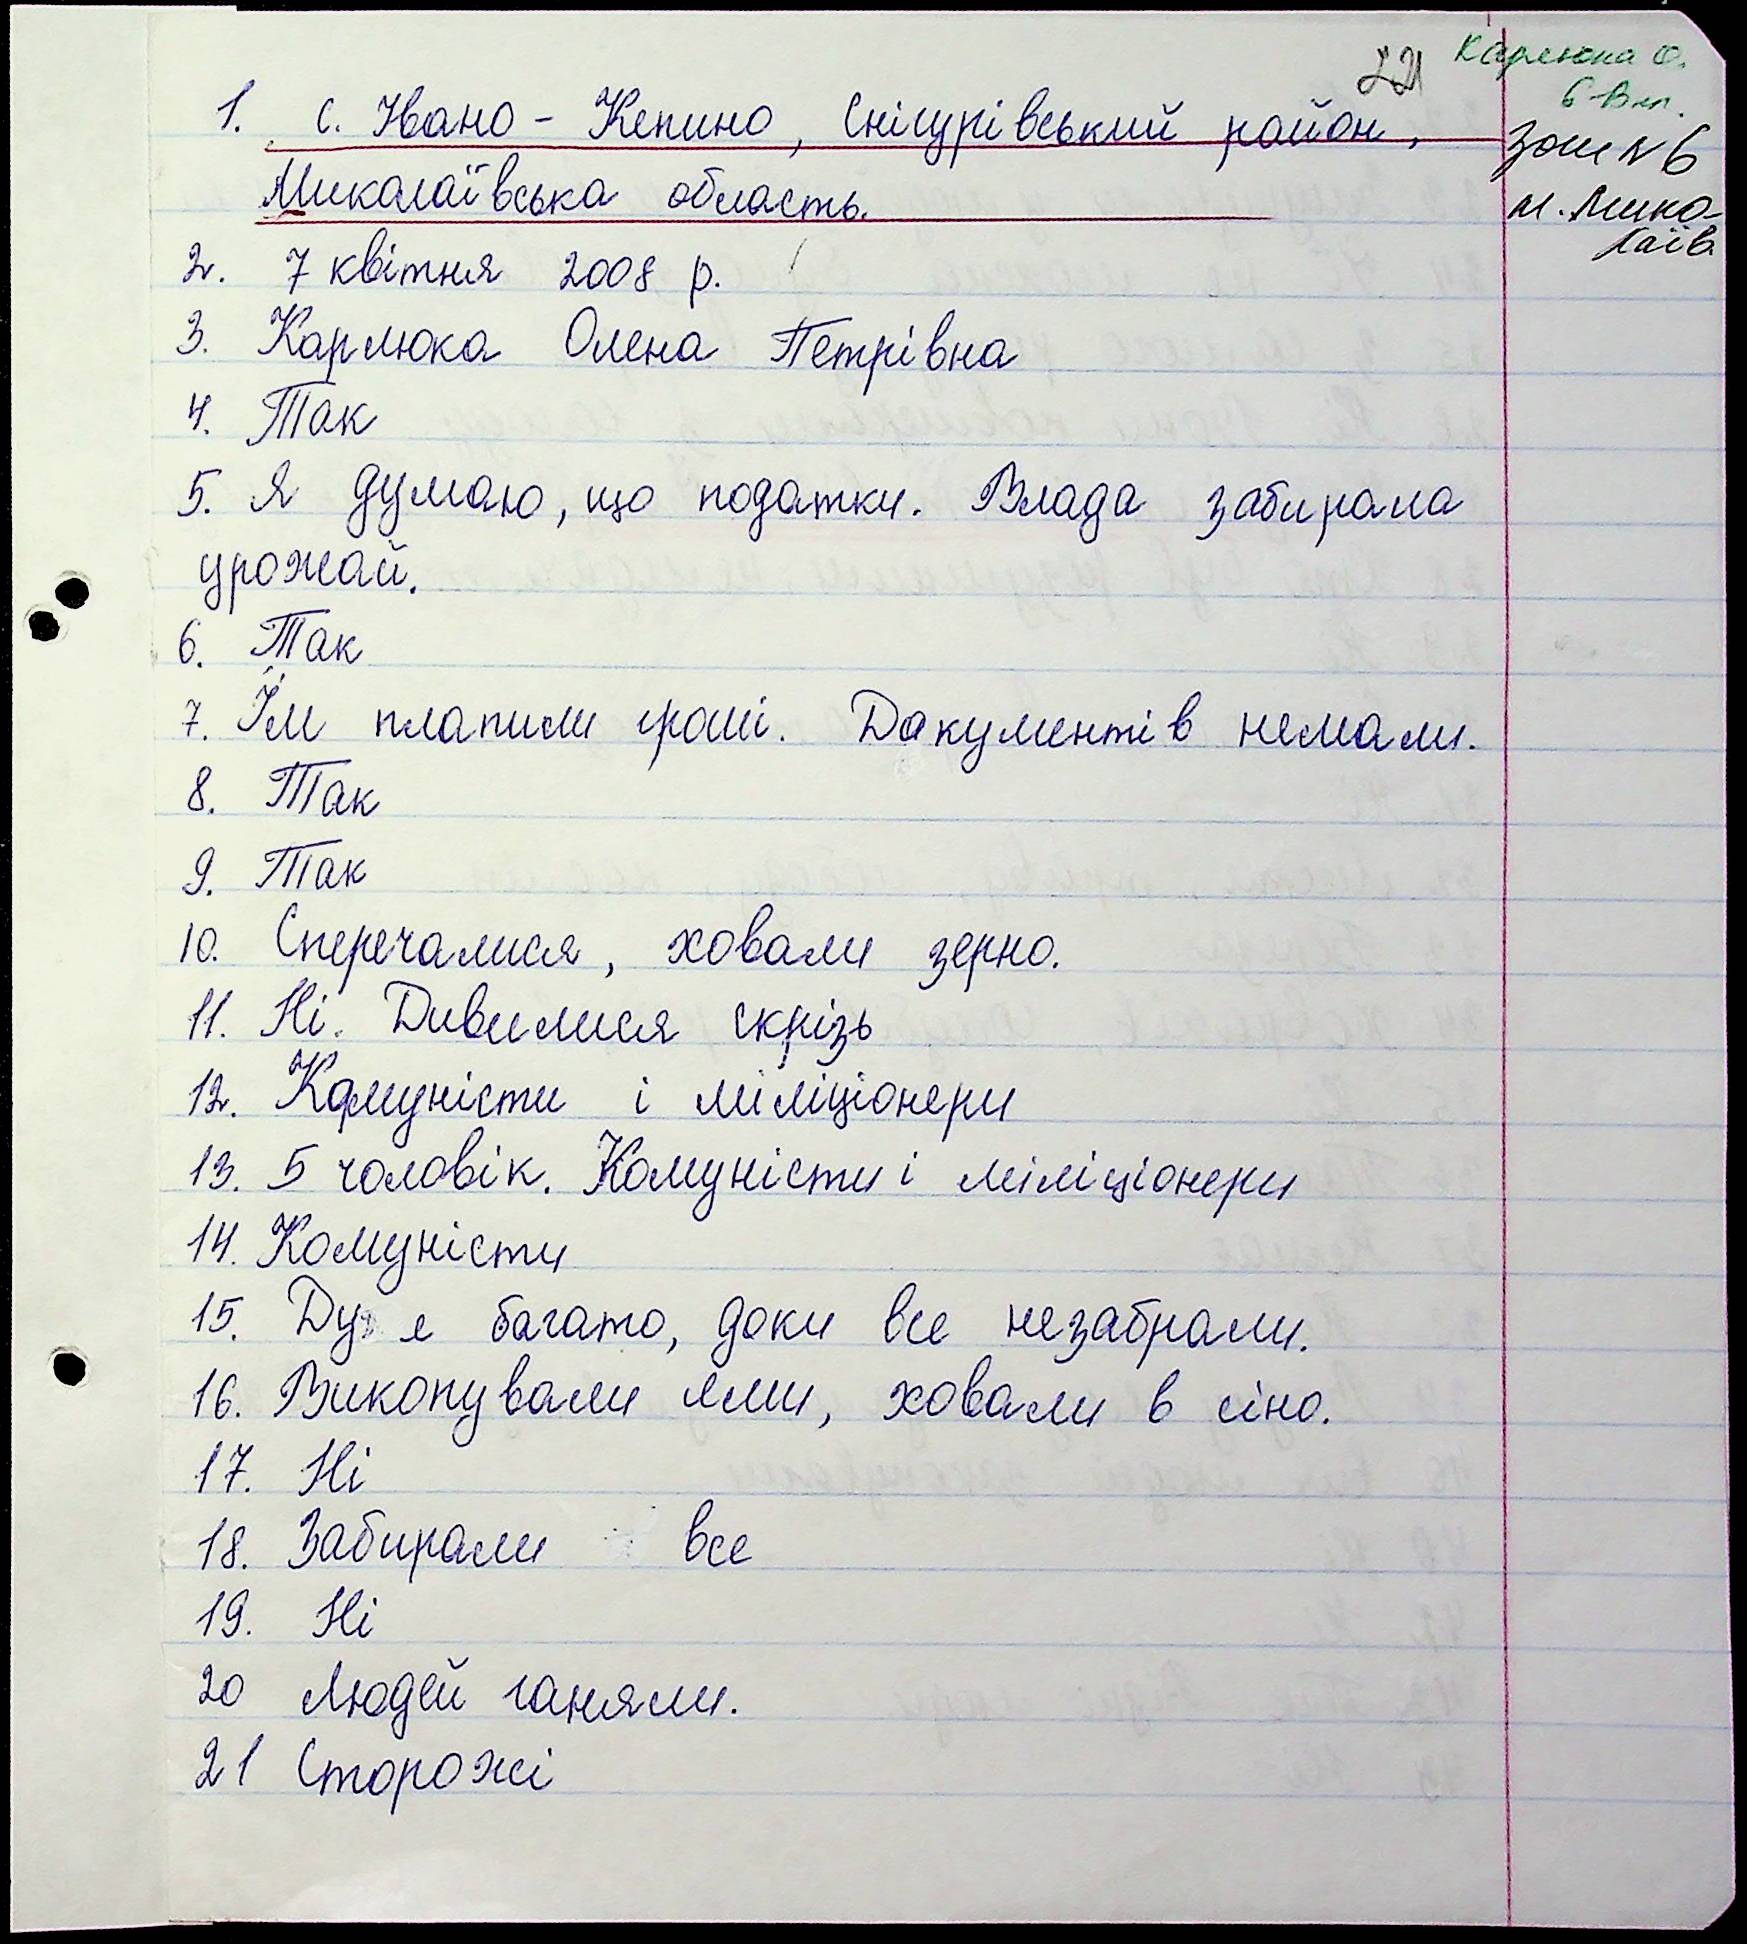 221
Карлюка О.
6-В кл.
ЗОШ №6
м. Мико-
лаїв.
1. с. Івано-Кепино, Снігурівський район,
Миколаївська область.
2. 7 квітня 2008 р.
3. Карлюка Олена Петрівна
4. Так
5. Я думаю, що податки. Влада забирала
урожай.
6. Так
7. Їм платили гроші. Документів немали.
8. Так
9. Так
10. Сперечалися, ховали зерно.
11. Ні. Дивилися скрізь
12. Комуністи і міліціонери
13. 5 чоловік. Комуністи і міліціонери
14. Комуністи
15. багато, доки все незабрали.
16. Викопували ями, ховали в сіно.
17. Ні
18. Забирали все
19. Ні
20 Людей ганяли.
21 Сторожі